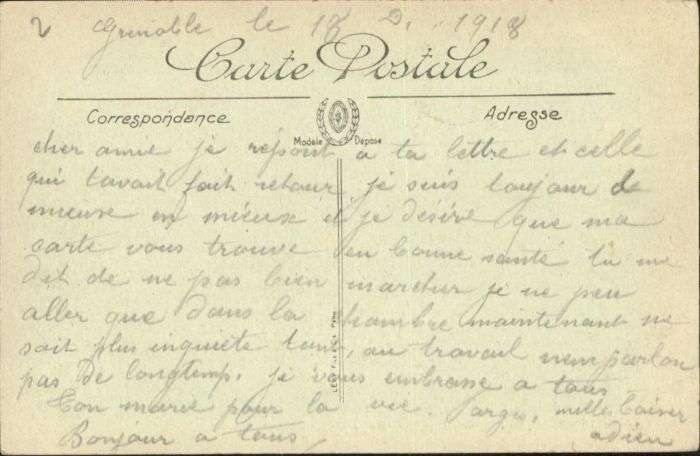 2 Grenoble le 18 D. 1918
Carte Postale
Correspondance
Adresse
Modèle Déposé
cher amie je repont a ta lettre et celle
qui tavait fait retour je suis toujour de
mieuse en mieuse et je désire que ma
carte vous trouve en bonne santé tu me
dit de ne pas bien marcher je ne peu
aller que dans la chambre maintenant ne
soit plus inquiete tant, au travail nem parlon
pas de longtemp. je vous embrasse a tous
Ton marie pour la vie. mille baiser
Bonjour a tous, adieu